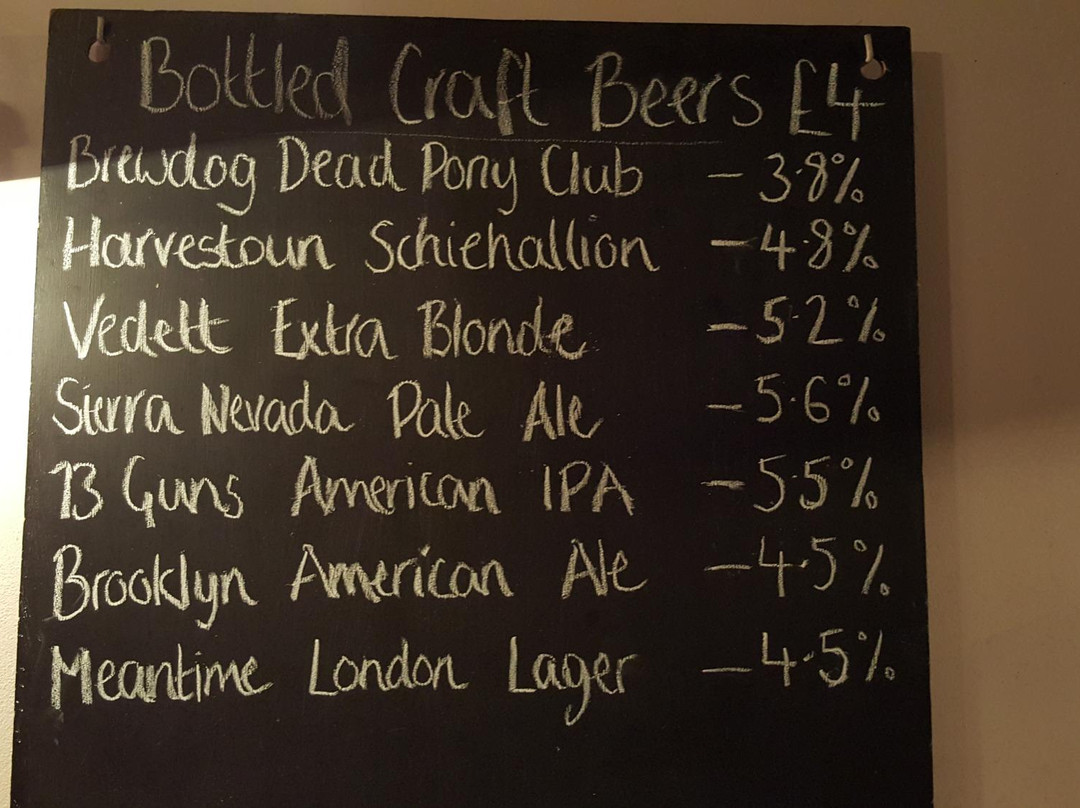 Bottled Craft Beers £4
Brewdog Dead Pony Club - 3.8%
Harvestoun Schiehallion - 4.8%
Vedett Extra Blonde - 5.2%
Sierra Nevada Pale Ale - 5.6%
13 Guns American IPA - 5.5%
Brooklyn American Ale - 4.5%
Meantime London Lager - 4.5%